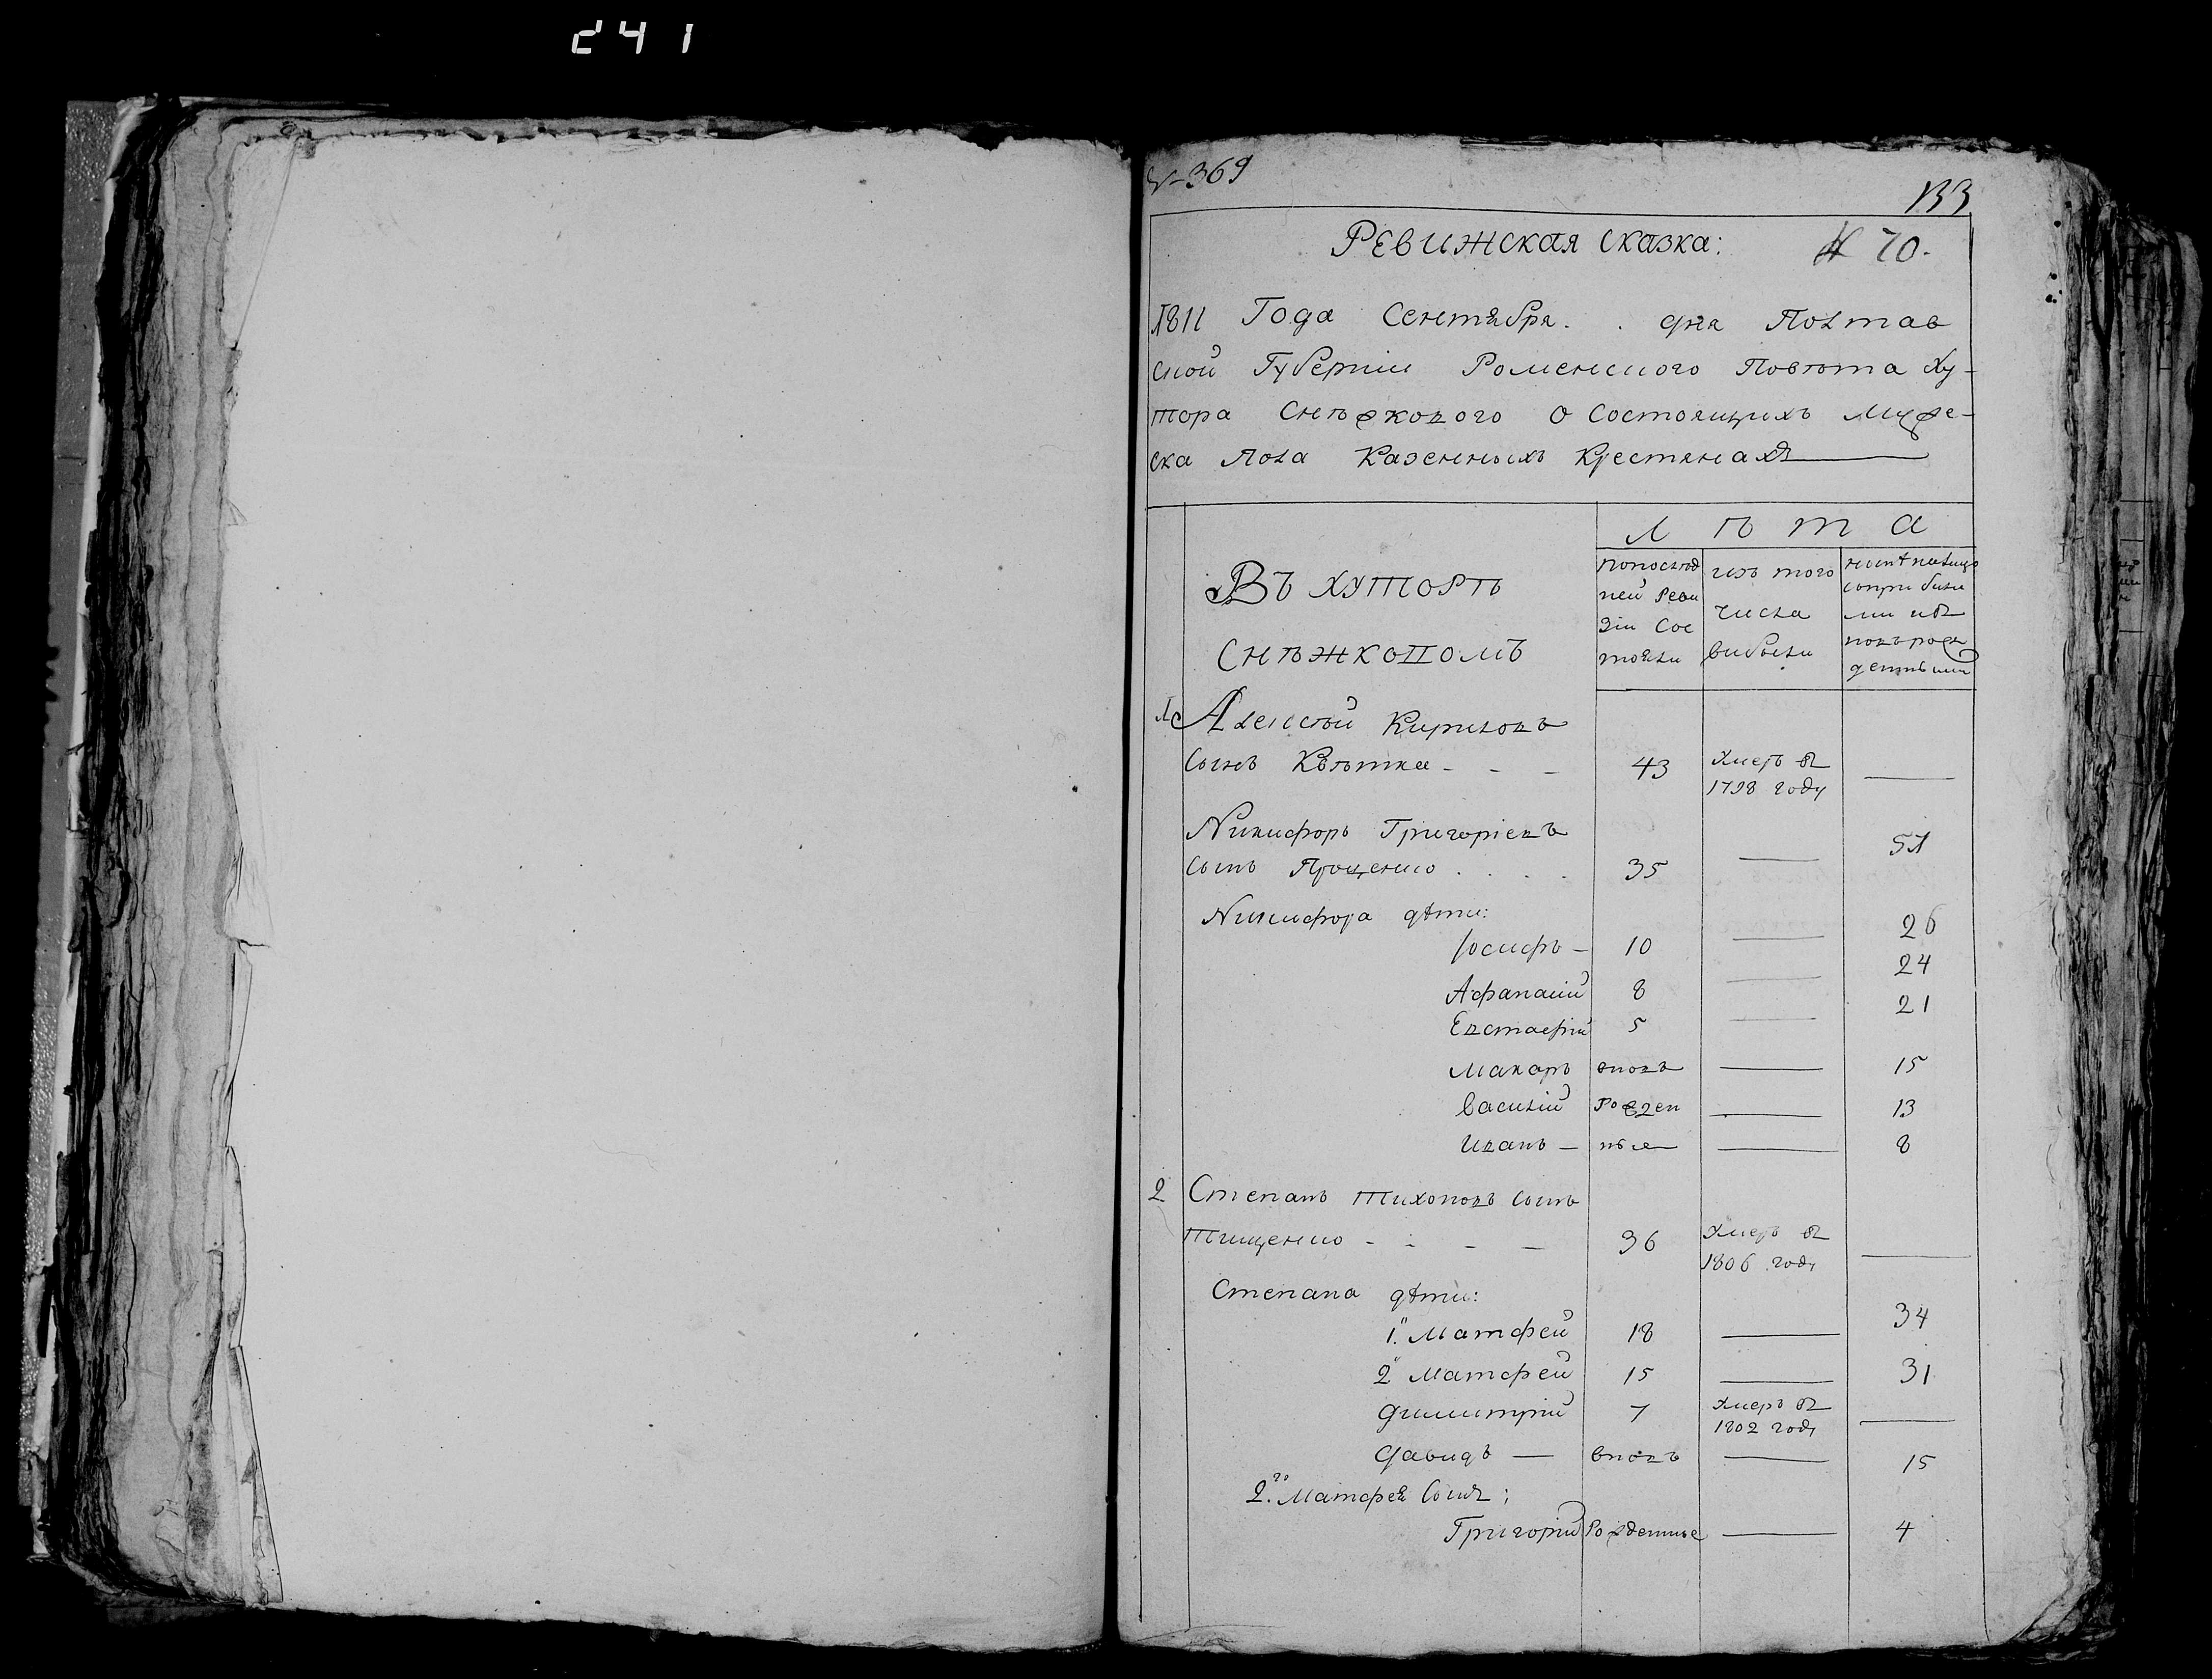 241
369
133
РЕВИЖСКАЯ СКАЗКА: № 70.
1811 Года Сентября . . дня Полтав
ской Губернии Роменского Повѣта Ху-
тора Снѣжкового о состоящихъ Муже-
ска пола Казенныхъ Крестянахъ
ВЪ ХУТОРѢ
СНѢЖКОВОМЪ
Л ѣ т а
попослѣд
ней Реви
зіи Сос
тояли
изъ того
числа
выбыли
1 Алексѣй Кириловъ
сынъ Квѣтка - - - 43 Умеръ въ
1798 году
Никифоръ Григоріевъ 51
сынъ Проценко . . . . 35
Никифора дѣти:
Іосифъ - 10 26
Афанасій 8 24
Евстафій 5 21
Макаръ вновь 15
Василій Рожден 13
Иванъ - ные 8
2 Степанъ Тихоновъ сынъ
Тищенко - - - - 36 Умеръ въ
1806 году
Степана дѣти:
1. Матфей 18 34
2 Матфей 15 31
Димитрій 7 Умеръ въ
1802 году
Давидъ — вновь 15
2.го Матфея сынъ:
Григорій Рожденные 4